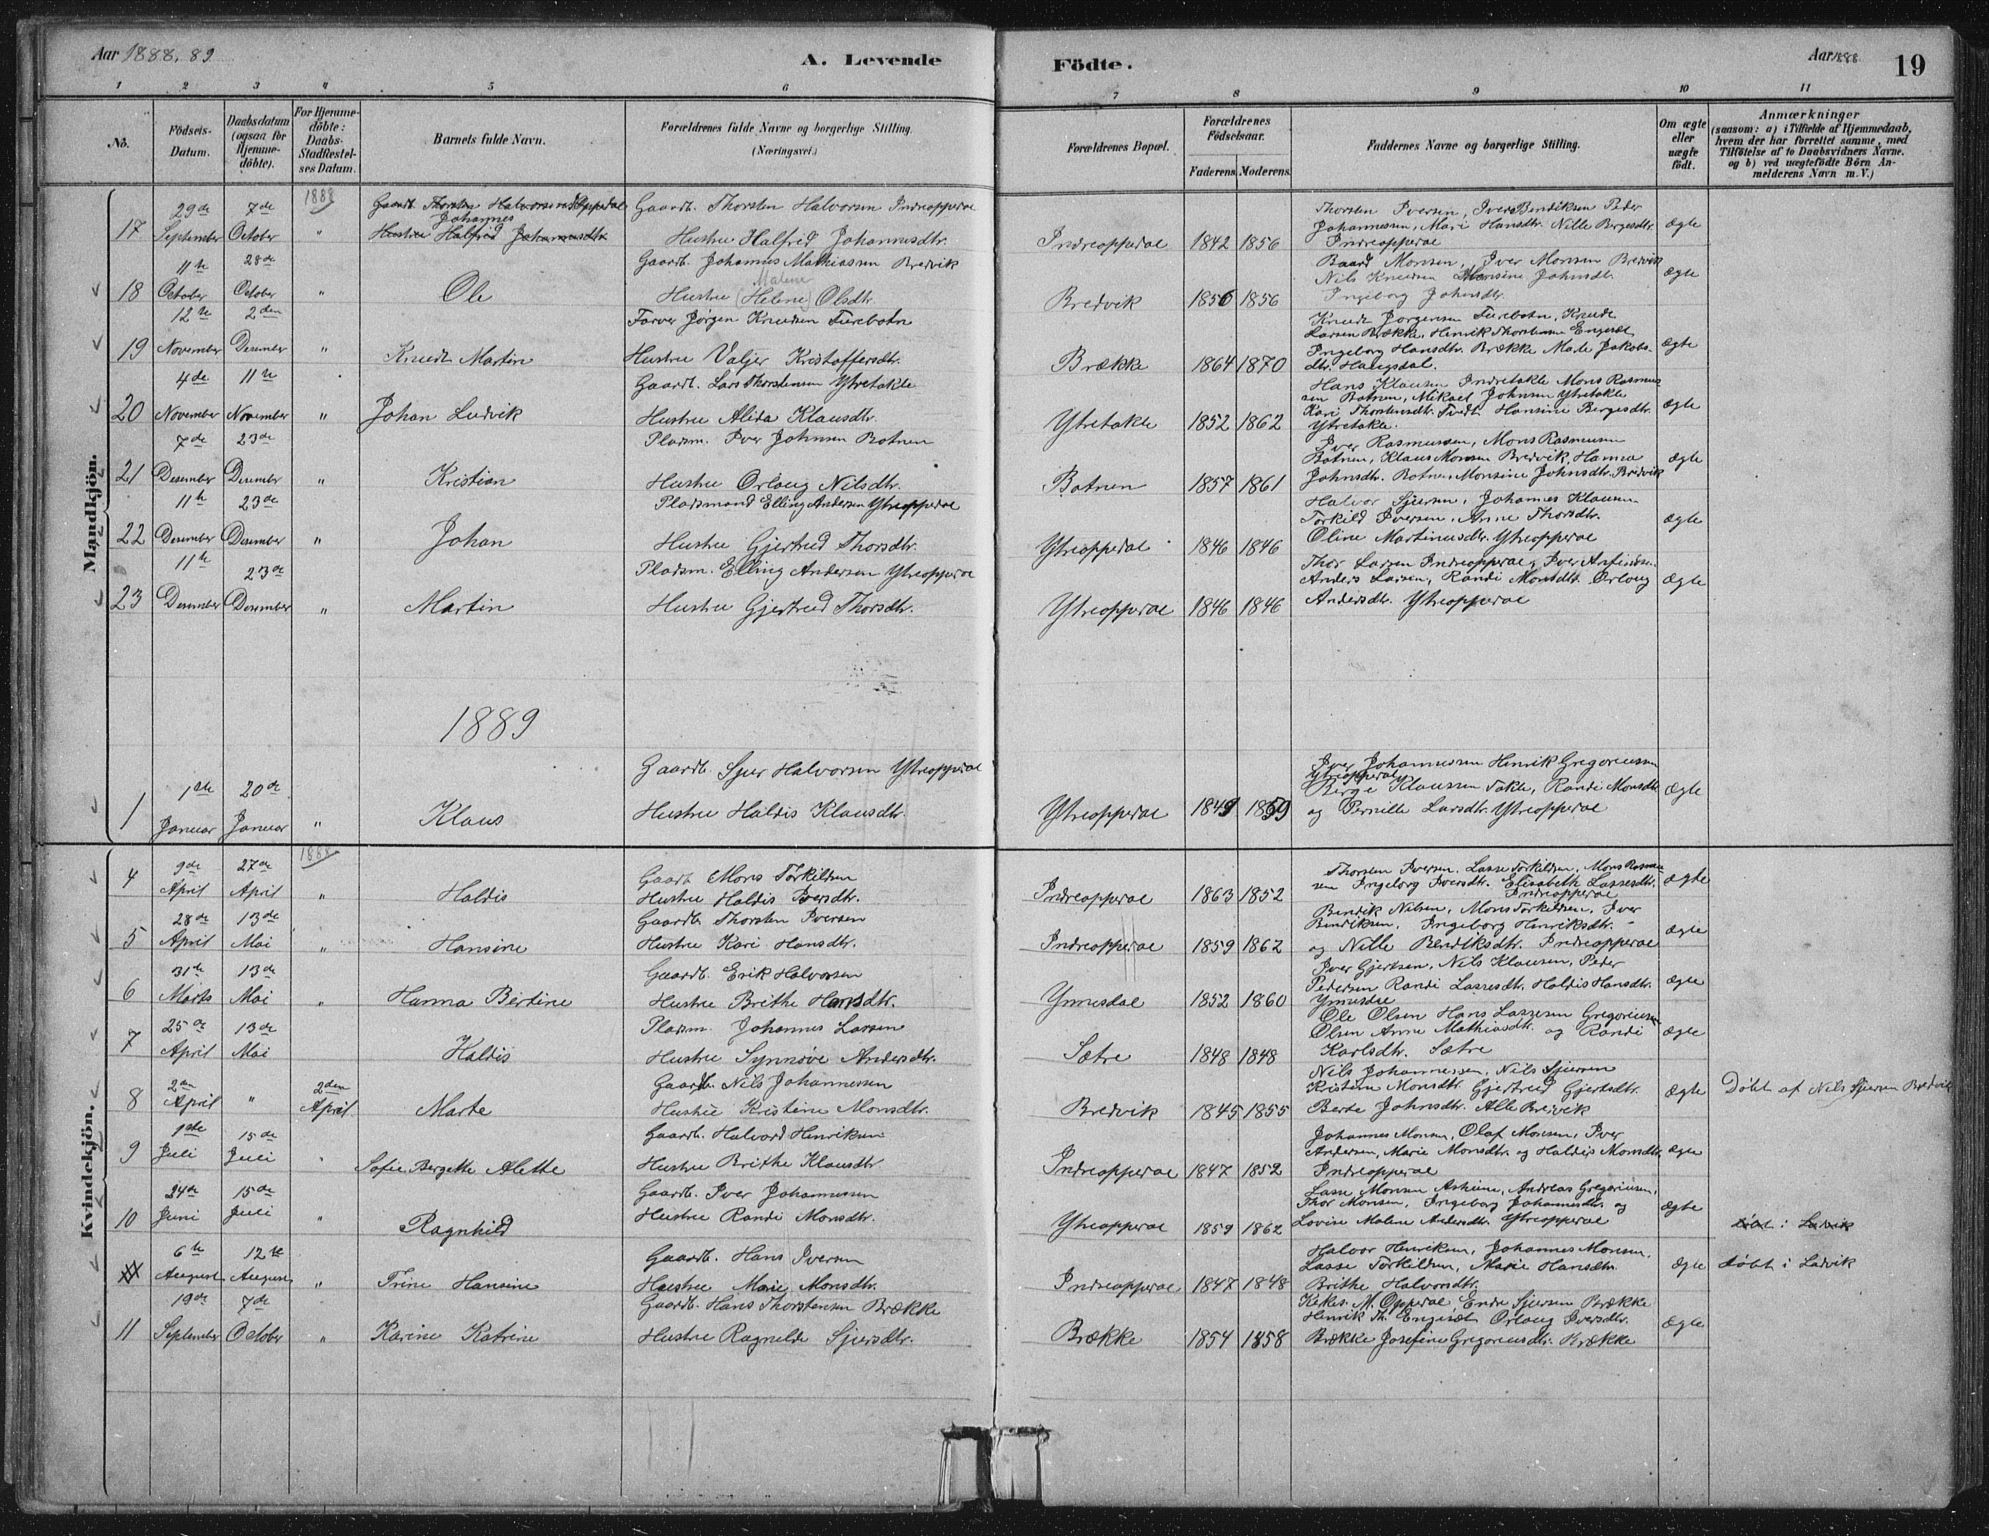 Aar 1888, 89
A. Levende
Födte.
Aar 1888
19
1 2 3 4 5 6 7 8 9 10 11
No.
Födsels-Datum.
Daabsdatum (ogsaa for Hjemme-döbte).
For Hjemme-döbte: Daabs-Stadfæstel-ses Datum.
Barnets fulde Navn.
Forældrenes fulde Navne og borgerlige Stilling.
(Næringsvei.)
Forældrenes Bopæl.
Forældrenes Födselsaar.
Faderens. Moderens.
Faddernes Navne og borgerlige Stilling.
Om ægte eller uægte født.
Anmærkninger
(saasom: a) i Tilfælde af Hjemmedaab,
hvem der har forrettet samme, med
Tilföielse af to Daabsvidners Navne.
og b) ved uægtefödte Börn An-
melderens Navn m. V.)
Mandkjön.
1888
17 29de September 7de October " Gaardb. Thorsten Halvorsen Indreoppedal
Johannes
Hustru Halfrid Johannesdtr.
Gaardb. Thorsten Halvorsen Indreoppedal
Hustru Halfrid Johannesdtr.
Indreoppedal 1842 1856
Thorsten Iversen, Iver Bendiksen Peder
Johannessen, Mari Hansdtr. Nille Bergesdtr
Indreoppedal
ægte
18 11te October 28de October " Ole
Gaardb. Johannes Mathiassen Bredvik
Malene
Hustru (Helene) Olsdtr.
Bredvik 1856 1856
Baard Monsen, Iver Monsen Bredvik
Nils Knudsen Monsine Johnsdtr.
Ingeborg Johnsdtr.
ægte
19 12te November 2den Desember " Knudt Martin
Farver Jørgen Knudsen Turebotn
Hustru Valjer Kristoffersdtr.
Brække 1864 1870
Knudt Jørgensen Turebotn, Knudt
Larsen Brække, Henrik Thorstensen Engesæt
Ingeborg Hansdtr. Brække Made Jakobs-
dtr. Haugsdal.
ægte
20 4de November 11te November " Johan Ludvik
Gaardb. Lars Thorstensen Ytretakle
Hustru Alida Klausdtr.
Ytretakle 1852 1862
Hans Klausen Indretakle Mons Rasmus
sen Botnen, Mikael Johnsen Ytretakle
Kari Thorstensdtr. Tvedt Hansine Bergesdtr.
Ytretakle.
ægte
21 7de Desember 23de Desember " Kristian
Pladsm. Iver Johnsen Botnen
Hustru Orloug Nilsdtr.
Botnen 1857 1861
Iver Rasmussen, Mons Rasmussen
Botnen, Klaus Monsen Bredvik, Hanna
Johnsdtr. Botnen Monsine Johnsdtr. Bredvik
ægte
22 11te Desember 23de Desember " Johan
Pladsmand Elling Andersen Ytreoppedal
Hustru Gjertrud Thorsdtr.
Ytreoppedal 1846 1846
Halvor Sjursen, Johannes Klausen
Torkild Iversen, Anne Thorsdtr.
Oline Martinusdtr. Ytreoppedal
ægte
23 11te Desember 23de Desember " Martin
Pladsm. Elling Andersen Ytreoppedal
Hustru Gjertrud Thorsdtr.
Ytreoppedal 1846 1846
Thor Larsen Indreoppedal, Iver Anfindsen
Anders Larsen, Randi Monsdtr. Orloug
Andersdtr. Ytreoppedal
ægte
1889
1 1ste Januar 20de Januar " Klaus
Gaardb. Sjur Halvorsen Ytreoppedal
Hustru Haldis Klausdtr.
Ytreoppedal 1849 1859
Iver Johannessen Henrik Gregoriussen
Ytreoppedal
Berge Klaussen Takle, Randi Monsdtr
og Pernille Larsdtr. Ytreoppedal
ægte
Kvindekjön.
1888
4 9de April 27de April " Haldis
Gaardb. Mons Torkildsen
Hustru Haldis Iversdtr.
Indreoppedal 1863 1852
Thorsten Iversen, Lasse Torkildsen, Mons Rasmus
sen Ingeborg Iversdtr. Elisabeth Lassesdtr.
Indreoppedal
ægte
5 28de April 13de Mai " Hansine
Gaardb. Thorsten Iversen
Hustru Kari Hansdtr.
Indreoppedal 1859 1862
Bendik Nilsen, Mons Torkildsen, Iver
Bendiksen, Ingeborg Henriksdtr.
og Nille Bendiksdtr. Indreoppedal
ægte
6 31te Marts 13de Mai " Hanna Bertine
Gaardb. Erik Halvorsen
Hustru Brithe Hansdtr.
Ynnesdal 1852 1860
Iver Gjertsen, Nils Klausen, Peder
Pedersen Randi Lassesdtr. Haldis Hansdtr.
Ynnesdal
ægte
7 25de April 13de Mai Haldis
Pladsm. Johannes Larsen
Hustru Synnøve Andersdtr.
Sætre 1848 1848
Ole Olsen Hans Lassesen Gregoriusen
Olsen Anne Mathiasdtr. og Randi
Karlsdtr. Sætre
ægte
8 2den April " 2den April Marte
Gaardb. Nils Johannessen
Hustru Kristine Monsdtr.
Bredvik 1845 1855
Nils Johannessen, Nils Sjursen
Kristine Monsdtr. Gjertrud Gjertsdtr.
Berte Johnsdtr. Alle Bredvik
ægte Døbt af Nils Sjursen Bredvik
9 1de Juli 15de Juli " Sofie Bergette Alette
Gaardb. Halvard Henriksen
Hustru Brithe Klausdtr.
Indreoppedal 1847 1852
Johannes Monsen, Olaf Monsen, Iver
Andersen, Marie Monsdtr. og Haldis Monsdtr.
Indreoppedal
ægte
10 24de Juni 15de Juli " Ragnhild
Gaardb. Iver Johannessen
Hustru Randi Monsdtr.
Ytreoppedal 1859 1862
Lasse Monsen Askene, Andreas Gregoriusen,
Thor Monsen, Ingeborg Johannesdtr. og
Lovise Malene Andersdtr. Ytreoppedal
ægte døbt i Ladvik
6te August 12te August " Trine Hansine
Gaardb. Hans Iversen
Hustru Marie Monsdtr.
Indreoppedal 1847 1848
Halvor Henriksen, Johannes Monsen,
Lasse Torkildsen, Marie Hansdtr.
Brithe Halvorsdtr.
ægte døbt i Ladvik
11 19de September 7de October " Karine Katrine
Gaardb. Hans Thorstensen Brække
Hustru Ragnilde Sjursdtr.
Brække 1854 1858
Kirkes. M. Oppedal, Endre Sjursen Brække
Henrik Th. Engesæt Orloug Iversdtr.
Brække Josefine Gregoriusdtr. Brække
ægte